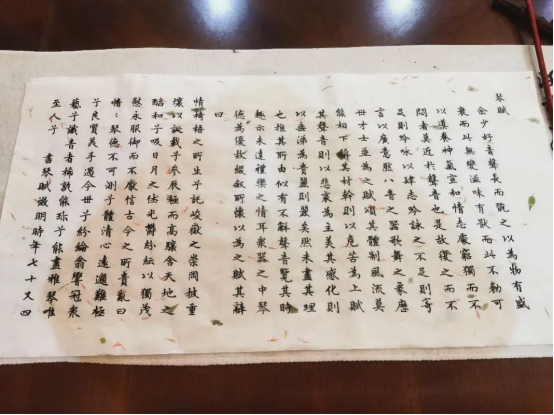 琴賦
余少好音聲長而翫之以為物有盛
衰而此無變滋味有猒而此不勌可
以導養神氣宣和情志處窮獨而不
悶者莫近於聲音也是故復之而不
足則吟咏以肆志吟詠之不足則寄
言以廣意然八音之器歌舞之象歷
世才士並為之賦頌其體制風流莫
能相下其材幹則以危苦為上賦
其聲音則以悲哀為主美其感化則
以垂涕為貴麗則麗矣然未盡其理
也推其所由似有不解聲音覽其時
趣亦未達禮樂之情耳衆器之中琴
德為優故綴叙所懷以為之賦其辭
曰
情椅梧之所生兮託峻嶽之崇岡披重
壤以誕載兮參辰極而高驤含天地之
醇和兮吸日月之休光鬱紛紜以獨茂
慰永服御而不厭信古今之所貴亂曰
愔愔琴德不可測兮體清心遠邈難極
兮良質美手遇今世兮紛綸翕響冠衆
藝兮識音者稀孰能珍兮能盡雅琴唯
至人兮 書琴賦 明時年七十又四